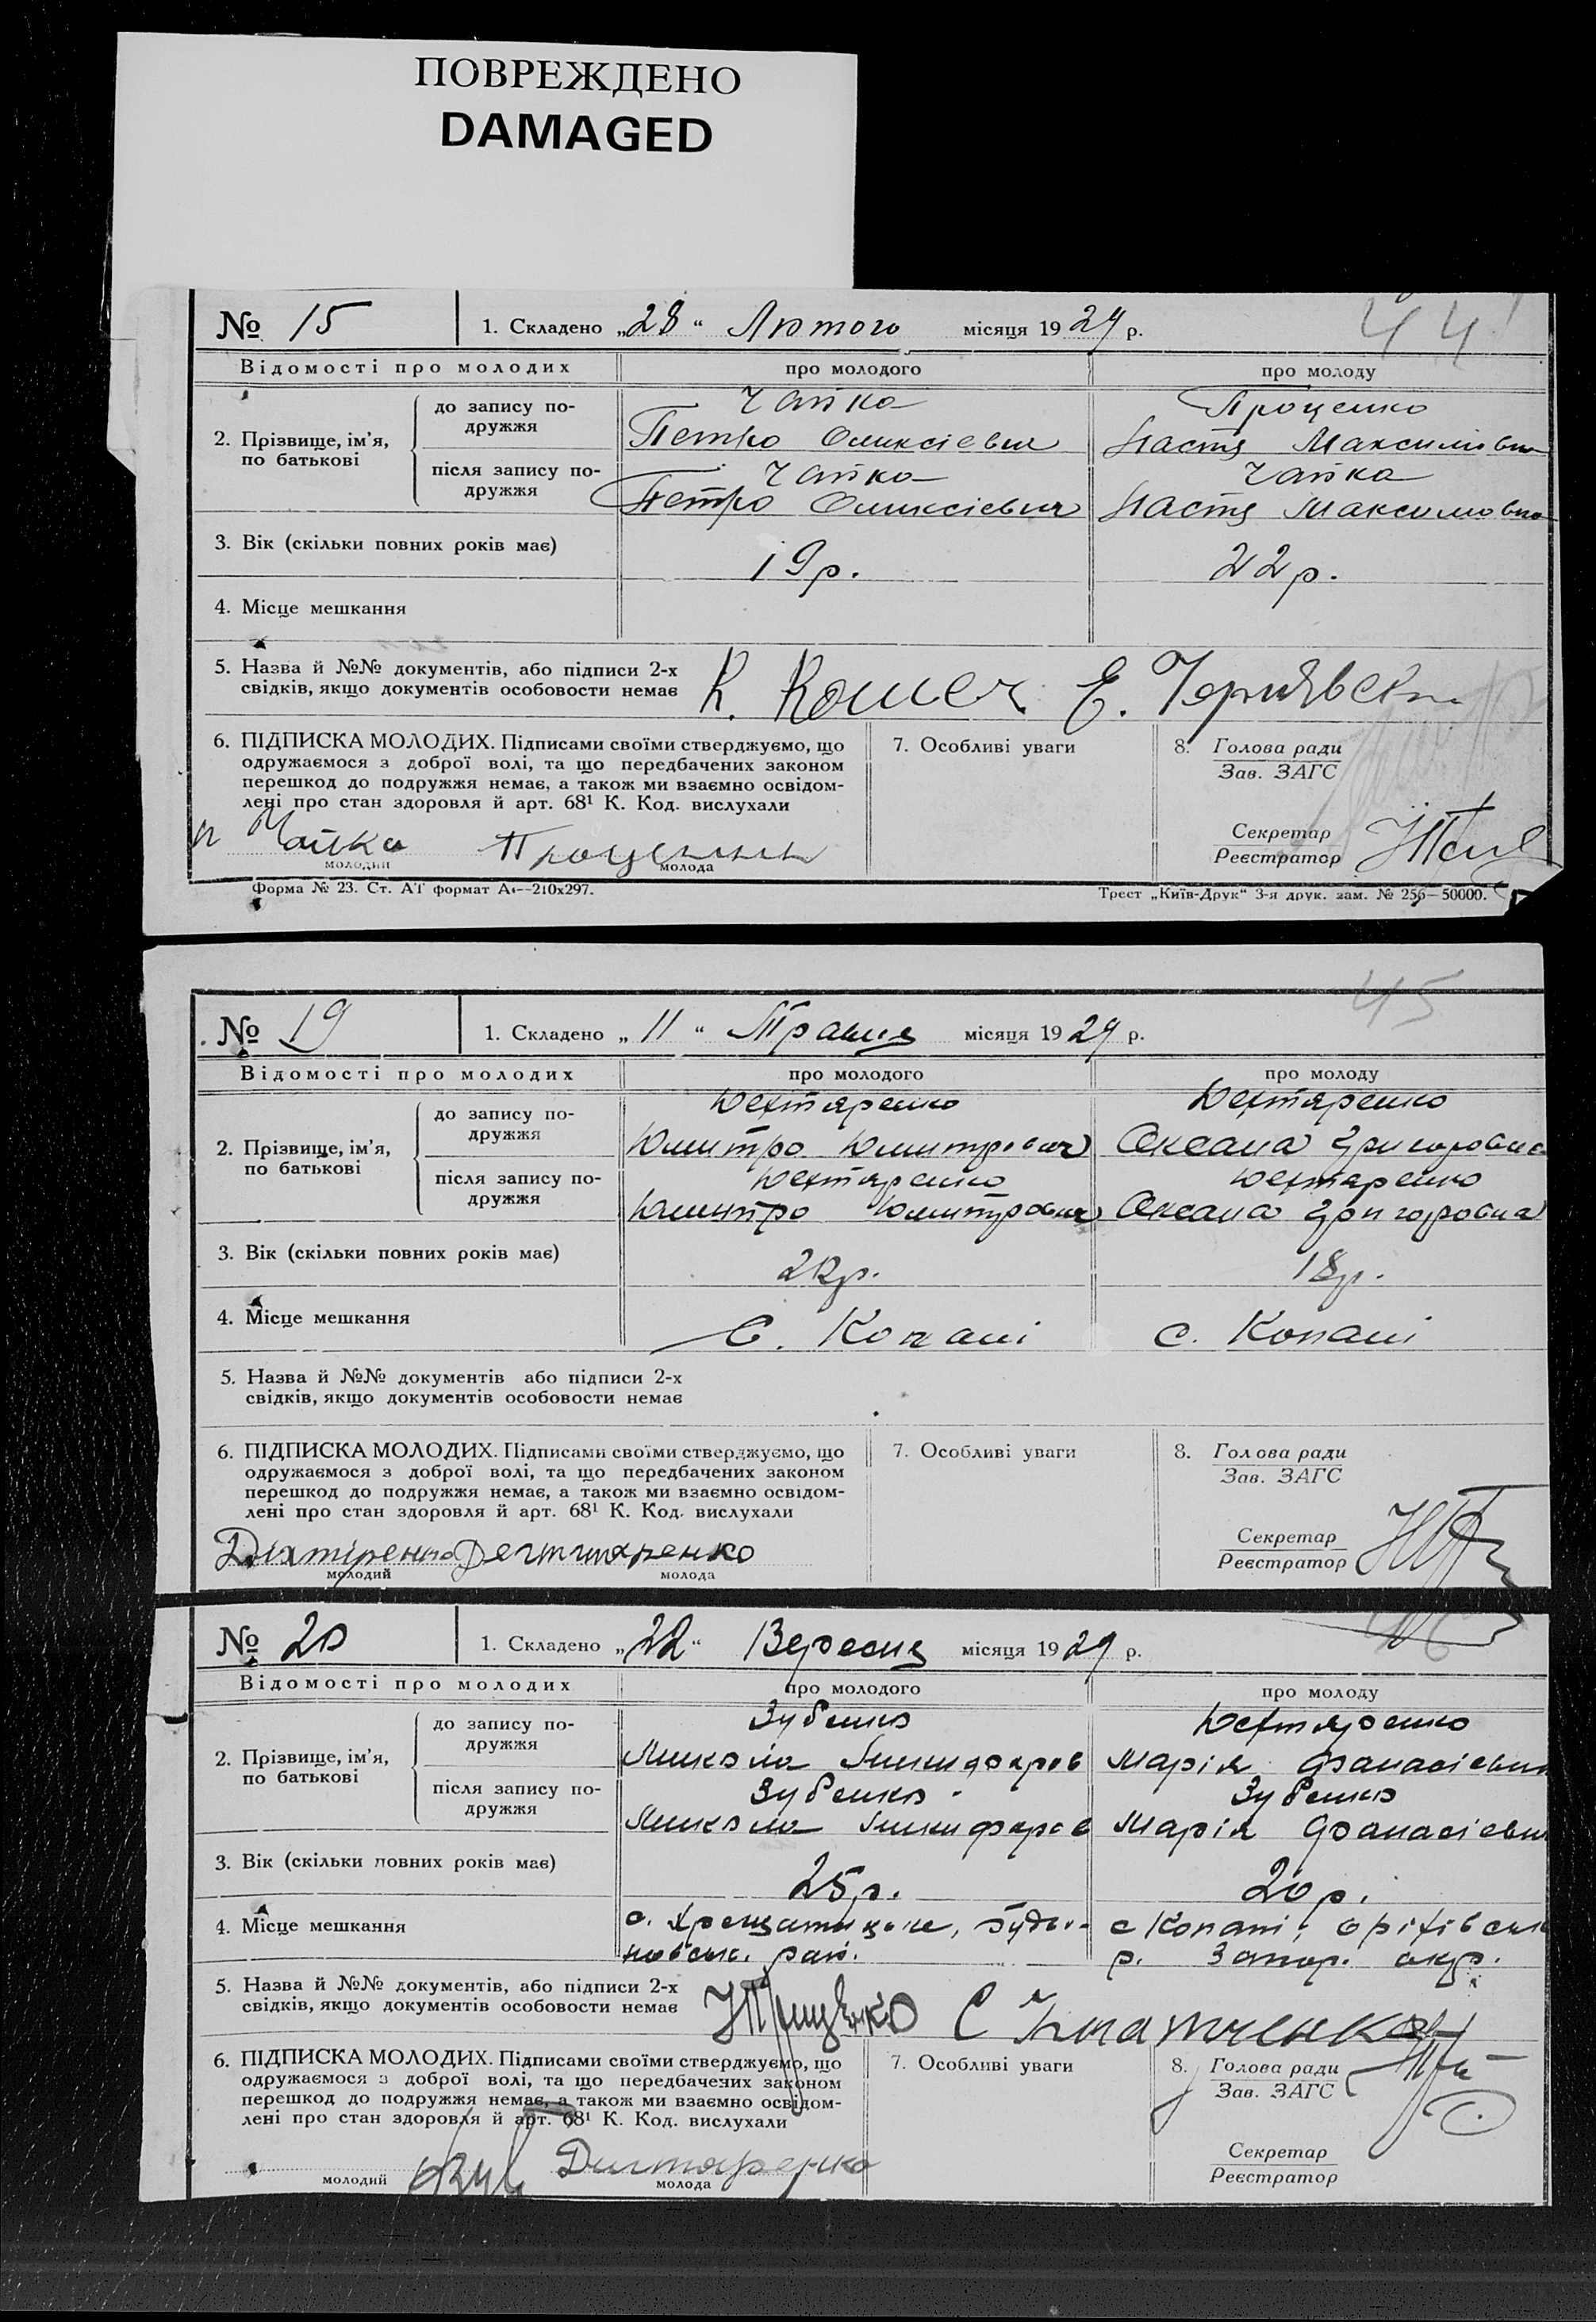 ПОВРЕЖДЕНО
DAMAGED
№ 15 1. Складено „28“ Лютого місяця 1929 р. 44
Відомості про молодих про молодого про молоду
2. Прізвище, ім’я, по батькові
до запису по-дружжя
Чайка Проценко
Петро Оликсієвич Настя Максимовна
після запису по-дружжя
Чайка Чайка
Петро Оликсієвич Настя Максимовна
3. Вік (скільки повних років має) 19 р. 22 р.
4. Місце мешкання
5. Назва й №№ документів, або підписи 2-х
свідків, якщо документів особовости немає
К. Е.
6. ПІДПИСКА МОЛОДИХ. Підписами своїми стверджуємо, що
одружаємося з доброї волі, та що передбачених законом
перешкод до подружжя немає, а також ми взаємно освідом-
лені про стан здоровля й арт. 68¹ К. Код. вислухали
7. Особливі уваги
8. Голова ради
Зав. ЗАГС
Секретар
Реєстратор
Чайка
молодий молода
Форма № 23. Ст. АТ формат А4—210х297.
Трест „Київ-Друк“ 3-я друк. зам. № 256—50000.
45
№ 19 1. Складено „11“ Травня місяця 1929 р.
Відомості про молодих про молодого про молоду
2. Прізвище, ім’я, по батькові
до запису по-дружжя
Дехтяренко Дехтяренко
Дмитро Дмитрович Оксана Григоровна
після запису по-дружжя
Дехтяренко Дехтяренко
Дмитро Дмитрович Оксана Григоровна
3. Вік (скільки повних років має) 22 р. 18 р.
4. Місце мешкання с. Копані с. Копані
5. Назва й №№ документів або підписи 2-х
свідків, якщо документів особовости немає
6. ПІДПИСКА МОЛОДИХ. Підписами своїми стверджуємо, що
одружаємося з доброї волі, та що передбачених законом
перешкод до подружжя немає, а також ми взаємно освідом-
лені про стан здоровля й арт. 68¹ К. Код. вислухали
7. Особливі уваги
8. Голова ради
Зав. ЗАГС
Секретар
Реєстратор
молодий молода
№ 20 1. Складено „22“ Вересня місяця 1929 р.
Відомості про молодих про молодого про молоду
2. Прізвище, ім’я, по батькові
до запису по-дружжя
Зубенко Дехтяренко
Микола Марія
після запису по-дружжя
Зубенко Зубенко
Микола Марія
3. Вік (скільки повних років має) 25 р. 20 р.
4. Місце мешкання
с. с Копані, оріхівськ
рай. р. Запор. окр.
5. Назва й №№ документів, або підписи 2-х
свідків, якщо документів особовости немає
6. ПІДПИСКА МОЛОДИХ. Підписами своїми стверджуємо, що
одружаємося з доброї волі, та що передбачених законом
перешкод до подружжя немає, а також ми взаємно освідом-
лені про стан здоровля й арт. 68¹ К. Код. вислухали
7. Особливі уваги
8. Голова ради
Зав. ЗАГС
Секретар
Реєстратор
молодий молода